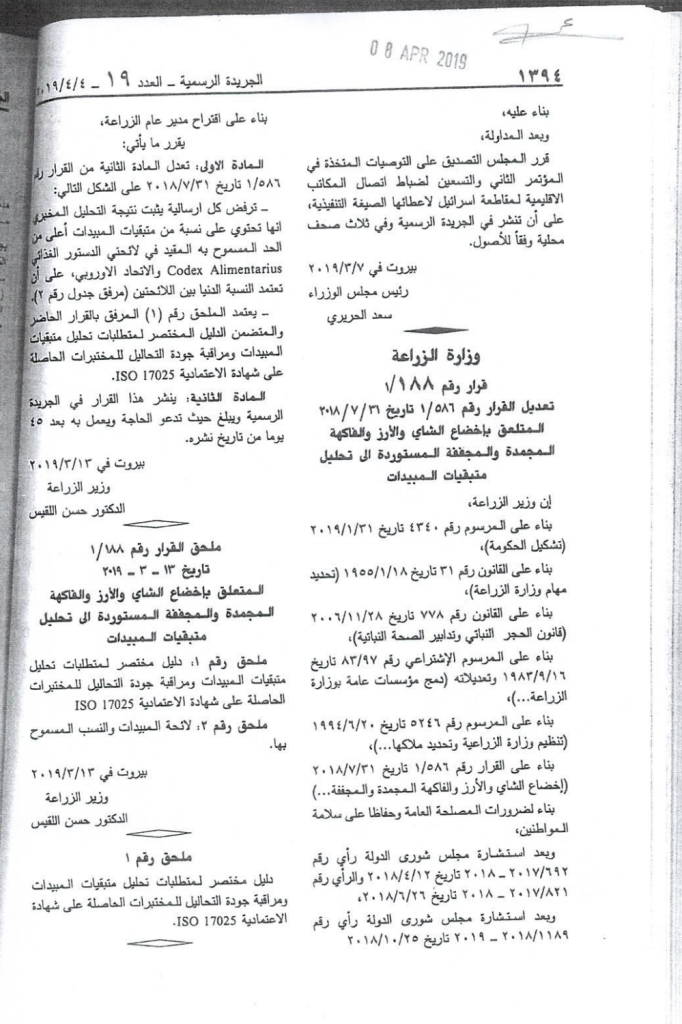 08 APR 2019
١٣٩٤
الجريدة الرسمية ــ العدد ١٩ ــ ٢٠١٩/٤/٤
بناء عليه،
وبعد المداولة،
قرر المجلس التصديق على التوصيات المتخذة في
المؤتمر الثاني والتسعين لضباط اتصال المكاتب
الاقليمية لمقاطعة اسرائيل لاعطائها الصيغة التنفيذية،
على أن تنشر في الجريدة الرسمية وفي ثلاث صحف
محلية وفقاً للأصول.
بيروت في ٢٠١٩/٣/٧
رئيس مجلس الوزراء
سعد الحريري
وزارة الزراعة
قرار رقم ١/١٨٨
تعديل القرار رقم ١/٥٨٦ تاريخ ٢٠١٨/٧/٣١
المتعلق بإخضاع الشاي والأرز والفاكهة
المجمدة والمجففة المستوردة الى تحليل
متبقيات المبيدات
إن وزير الزراعة،
بناء على المرسوم رقم ٤٣٤٠ تاريخ ٢٠١٩/١/٣١
(تشكيل الحكومة)،
بناء على القانون رقم ٣١ تاريخ ١٩٥٥/١/١٨ (تحديد
مهام وزارة الزراعة)،
بناء على القانون رقم ٧٧٨ تاريخ ٢٠٠٦/١١/٢٨
(قانون الحجر النباتي وتدابير الصحة النباتية)،
بناء على المرسوم الإشتراعي رقم ٨٣/٩٧ تاريخ
١٩٨٣/٩/١٦ وتعديلاته (دمج مؤسسات عامة بوزارة
الزراعة...)،
بناء على المرسوم رقم ٥٢٤٦ تاريخ ١٩٩٤/٦/٢٠
(تنظيم وزارة الزراعية وتحديد ملاكها...)،
بناء على القرار رقم ١/٥٨٦ تاريخ ٢٠١٨/٧/٣١
(إخضاع الشاي والأرز والفاكهة المجمدة والمجففة...)
بناء لضرورات المصلحة العامة وحفاظا على سلامة
المواطنين،
وبعد استشارة مجلس شورى الدولة رأي رقم
٢٠١٧/٦٩٢ ــ ٢٠١٨ تاريخ ٢٠١٨/٤/١٢ والرأي رقم
٢٠١٧/٨٢١ ــ ٢٠١٨ تاريخ ٢٠١٨/٦/٢٦،
وبعد استشارة مجلس شورى الدولة رأي رقم
٢٠١٨/١١٨٩ ــ ٢٠١٩ تاريخ ٢٠١٨/١٠/٢٥
بناء على اقتراح مدير عام الزراعة،
يقرر ما يأتي:
المادة الاولى: تعدل المادة الثانية من القرار رقم
١/٥٨٦ تاريخ ٢٠١٨/٧/٣١ على الشكل التالي:
ــ ترفض كل ارسالية يثبت نتيجة التحليل المخبري
انها تحتوي على نسبة من متبقيات المبيدات أعلى من
الحد المسموح به المقيد في لائحتي الدستور الغذائي
Codex Alimentarius والاتحاد الاوروبي، على أن
تعتمد النسبة الدنيا بين اللائحتين (مرفق جدول رقم ٢).
ــ يعتمد الملحق رقم (١) المرفق بالقرار الحاضر
والمتضمن الدليل المختصر لمتطلبات تحليل متبقيات
المبيدات ومراقبة جودة التحاليل للمختبرات الحاصلة
على شهادة الاعتمادية ISO 17025.
المادة الثانية: ينشر هذا القرار في الجريدة
الرسمية ويبلغ حيث تدعو الحاجة ويعمل به بعد ٤٥
يوما من تاريخ نشره.
بيروت في ٢٠١٩/٣/١٣
وزير الزراعة
الدكتور حسن اللقيس
ملحق القرار رقم ١/١٨٨
تاريخ ١٣ ــ ٣ ــ ٢٠١٩
المتعلق بإخضاع الشاي والأرز والفاكهة
المجمدة والمجففة المستوردة الى تحليل
متبقيات المبيدات
ملحق رقم ١: دليل مختصر لمتطلبات تحليل
متبقيات المبيدات ومراقبة جودة التحاليل للمختبرات
الحاصلة على شهادة الاعتمادية ISO 17025
ملحق رقم ٢: لائحة المبيدات والنسب المسموح
بها.
بيروت في ٢٠١٩/٣/١٣
وزير الزراعة
الدكتور حسن اللقيس
ملحق رقم ١
دليل مختصر لمتطلبات تحليل متبقيات المبيدات
ومراقبة جودة التحاليل للمختبرات الحاصلة على شهادة
الاعتمادية ISO 17025.